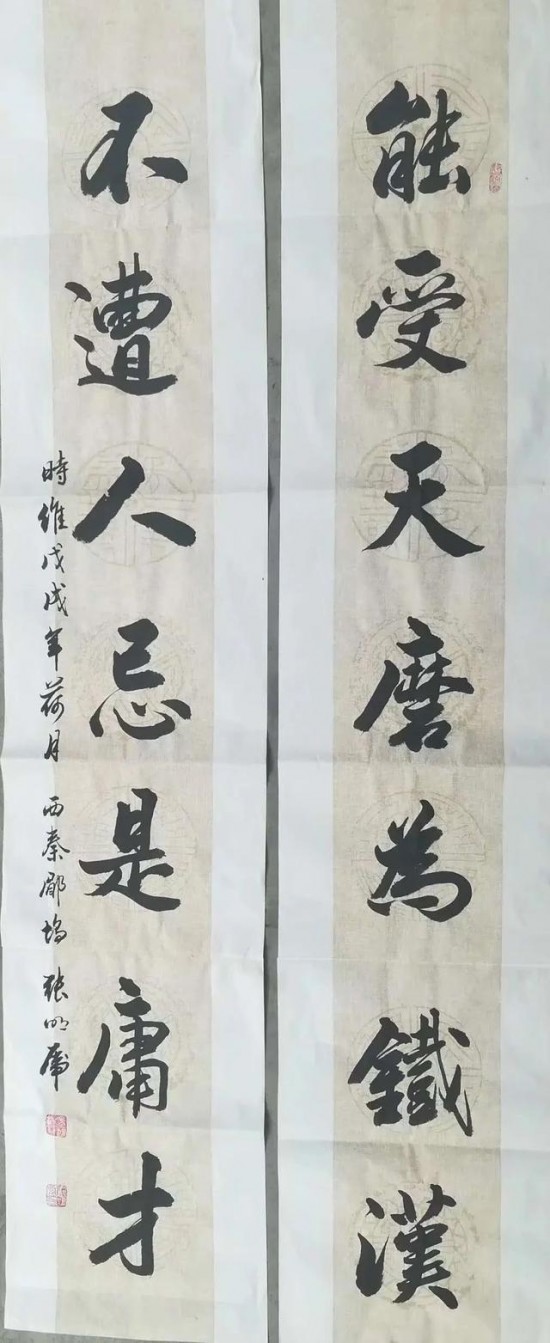 能受天磨為鐵漢
不遭人忌是庸才
時維戊戌年荷月 西秦郿塢 張明虎